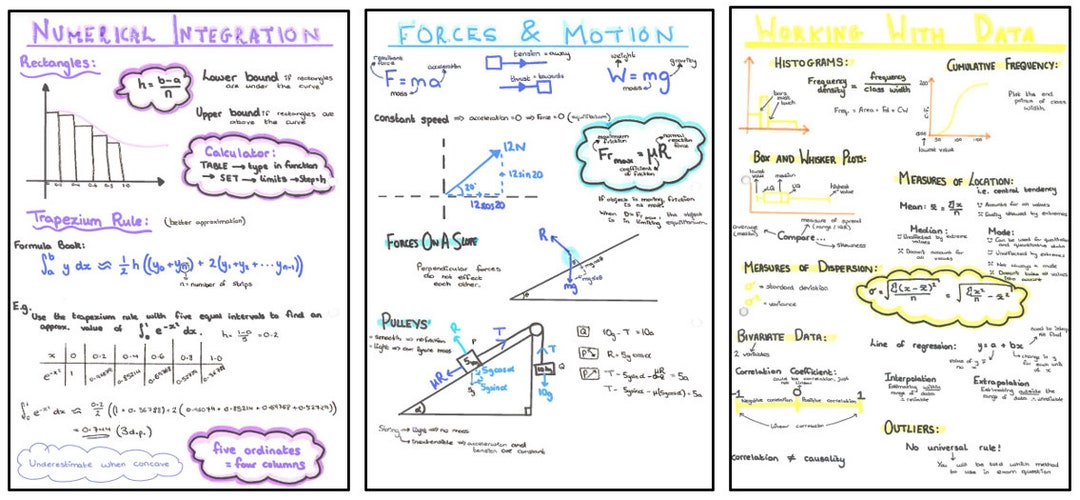 NUMERICAL INTEGRATION
Rectangles:
h = b-a/n
Lower bound if rectangles
are under the curve
Upper bound if rectangles are
above the curve
Calculator:
TABLE → type in function
→ SET → limits → Step = h
0.2 0.4 0.6 0.8 1.0
Trapezium Rule: (better approximation)
Formula Book:
∫ₐᵇ y dx ≈ ½ h ((y₀ + yₙ) + 2(y₁ + y₂ + ... yₙ₋₁))
n = number of strips
E.g.
Use the trapezium rule with five equal intervals to find an
approx. value of ∫₀¹ e^-x² dx. h = 1-0/5 = 0.2
x 0 0.2 0.4 0.6 0.8 1.0
e^-x² 1
= 0.744 (3d.p.)
Underestimate when concave
five ordinates
= four columns
FORCES & MOTION
resultant force
F = ma
acceleration
mass
tension = away
thrust = towards
weight
W = mg
gravity
mass
Constant speed ⇒ acceleration = 0 ⇒ Force = 0 (equilibrium)
12N
12sin20
20°
12cos20
maximum friction
Fr max = μR
normal reaction force
coefficient of friction
If object is moving, friction
is at max.
When D = Fr max, the object
is in limiting equilibrium.
FORCES ON A SLOPE
R
Perpendicular forces
do not effect
each other.
mg
θ
PULLEYS
- smooth ⇒ no friction
- light ⇒ can ignore mass
R
P
T
T
μR
5g
5gcosα
5gsinα
α
Q
10g
Q 10g - T = 10a
P R = 5g cosα
P T - 5gsinα - μR = 5a
T - 5gsinα - μ(5gcosα) = 5a
String → Light ⇒ no mass
→ Inextensible ⇒ acceleration and
tension are constant
WORKING WITH DATA
HISTOGRAMS:
bars must touch
Frequency density = frequency / class width
Freq = Area = Fd × CW
CUMULATIVE FREQUENCY:
200
0
50 100 150
lowest value
Plot the end
points of class
width
BOX AND WHISKER PLOTS:
lowest value
LQ
median
UQ
Highest value
average (median)
Compare...
measure of spread
(range / IQR)
skewness
MEASURES OF LOCATION:
i.e. central tendency
Mean: x̄ = Σx/n
Accounts for all values
Easily skewed by extremes
Median:
Unaffected by extreme
values
Doesn't account for
all values
Mode:
Can be used for qualitative
and quantitative data
Unaffected by extremes
Not always a mode
MEASURES OF DISPERSION:
σ = standard deviation
σ² = variance
σ = √(Σ(x - x̄)²/n) = √(Σx²/n - x̄²)
BIVARIATE DATA:
2 variables
Correlation Coefficient:
-1 0 1
Negative correlation Positive correlation
Linear correlation
correlation ≠ causality
Line of regression: y = a + bx
Interpolation
Estimating within
range of data
= reliable
Extrapolation
Estimating outside the
range of data = unreliable
OUTLIERS:
No universal rule!
You will be told which method
to use in exam question